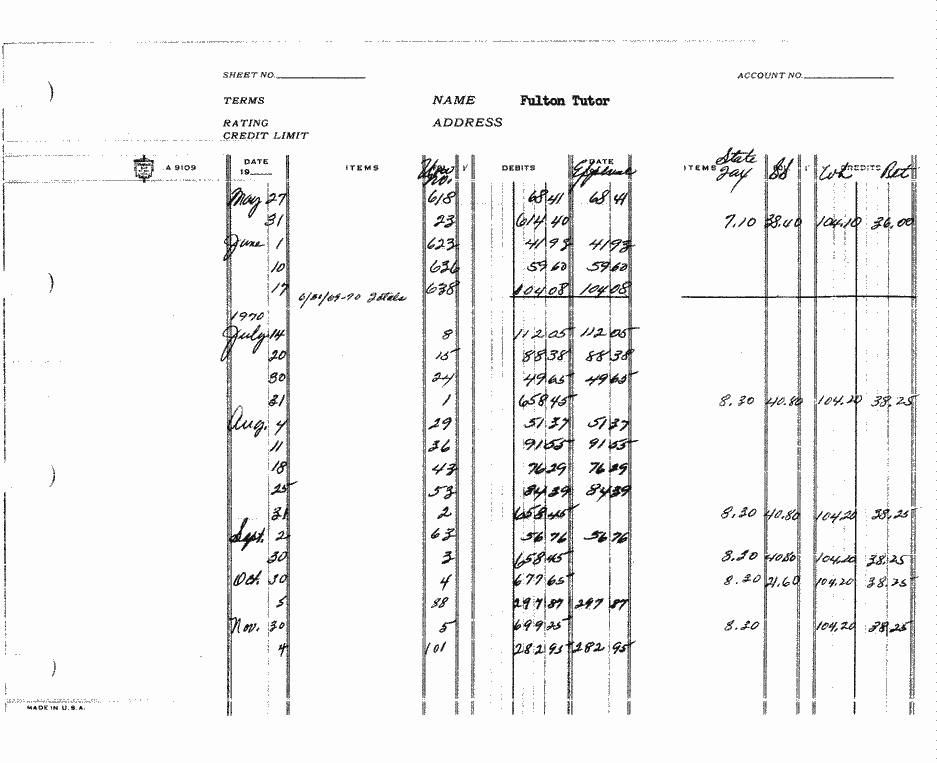 SHEET NO. ACCOUNT NO.
TERMS NAME Fulton Tutor
RATING ADDRESS
CREDIT LIMIT
A 9109 DATE 19 ITEMS No. DEBITS DATE Expense ITEMS State Tax SS CREDITS Wh Ret
May 27 618 68 41 68 41
31 23 614 40 7.10 38.40 104.10 36.00
June 1 623 41 93 41 93
10 636 59 60 59 60
17 638 104 08 104 08
6/30/69-70 Totals
1970
July 14 8 112 05 112 05
20 15 88 38 88 38
30 24 49 65 49 65
31 1 658 45 8.30 40.80 104.20 38.25
Aug. 4 29 51 37 51 37
11 36 91 55 91 55
18 43 76 29 76 29
25 53 84 39 84 39
31 2 658 45 8.30 40.80 104.20 38.25
Sept. 2 63 56 76 56 76
30 3 658 45 8.30 40.80 104.20 38.25
Oct. 30 4 677 65 8.30 21.60 104.20 38.25
5 88 297 87 297 87
Nov. 30 5 699 25 8.30 104.20 38.25
4 101 282 95 282 95
MADE IN U.S.A.